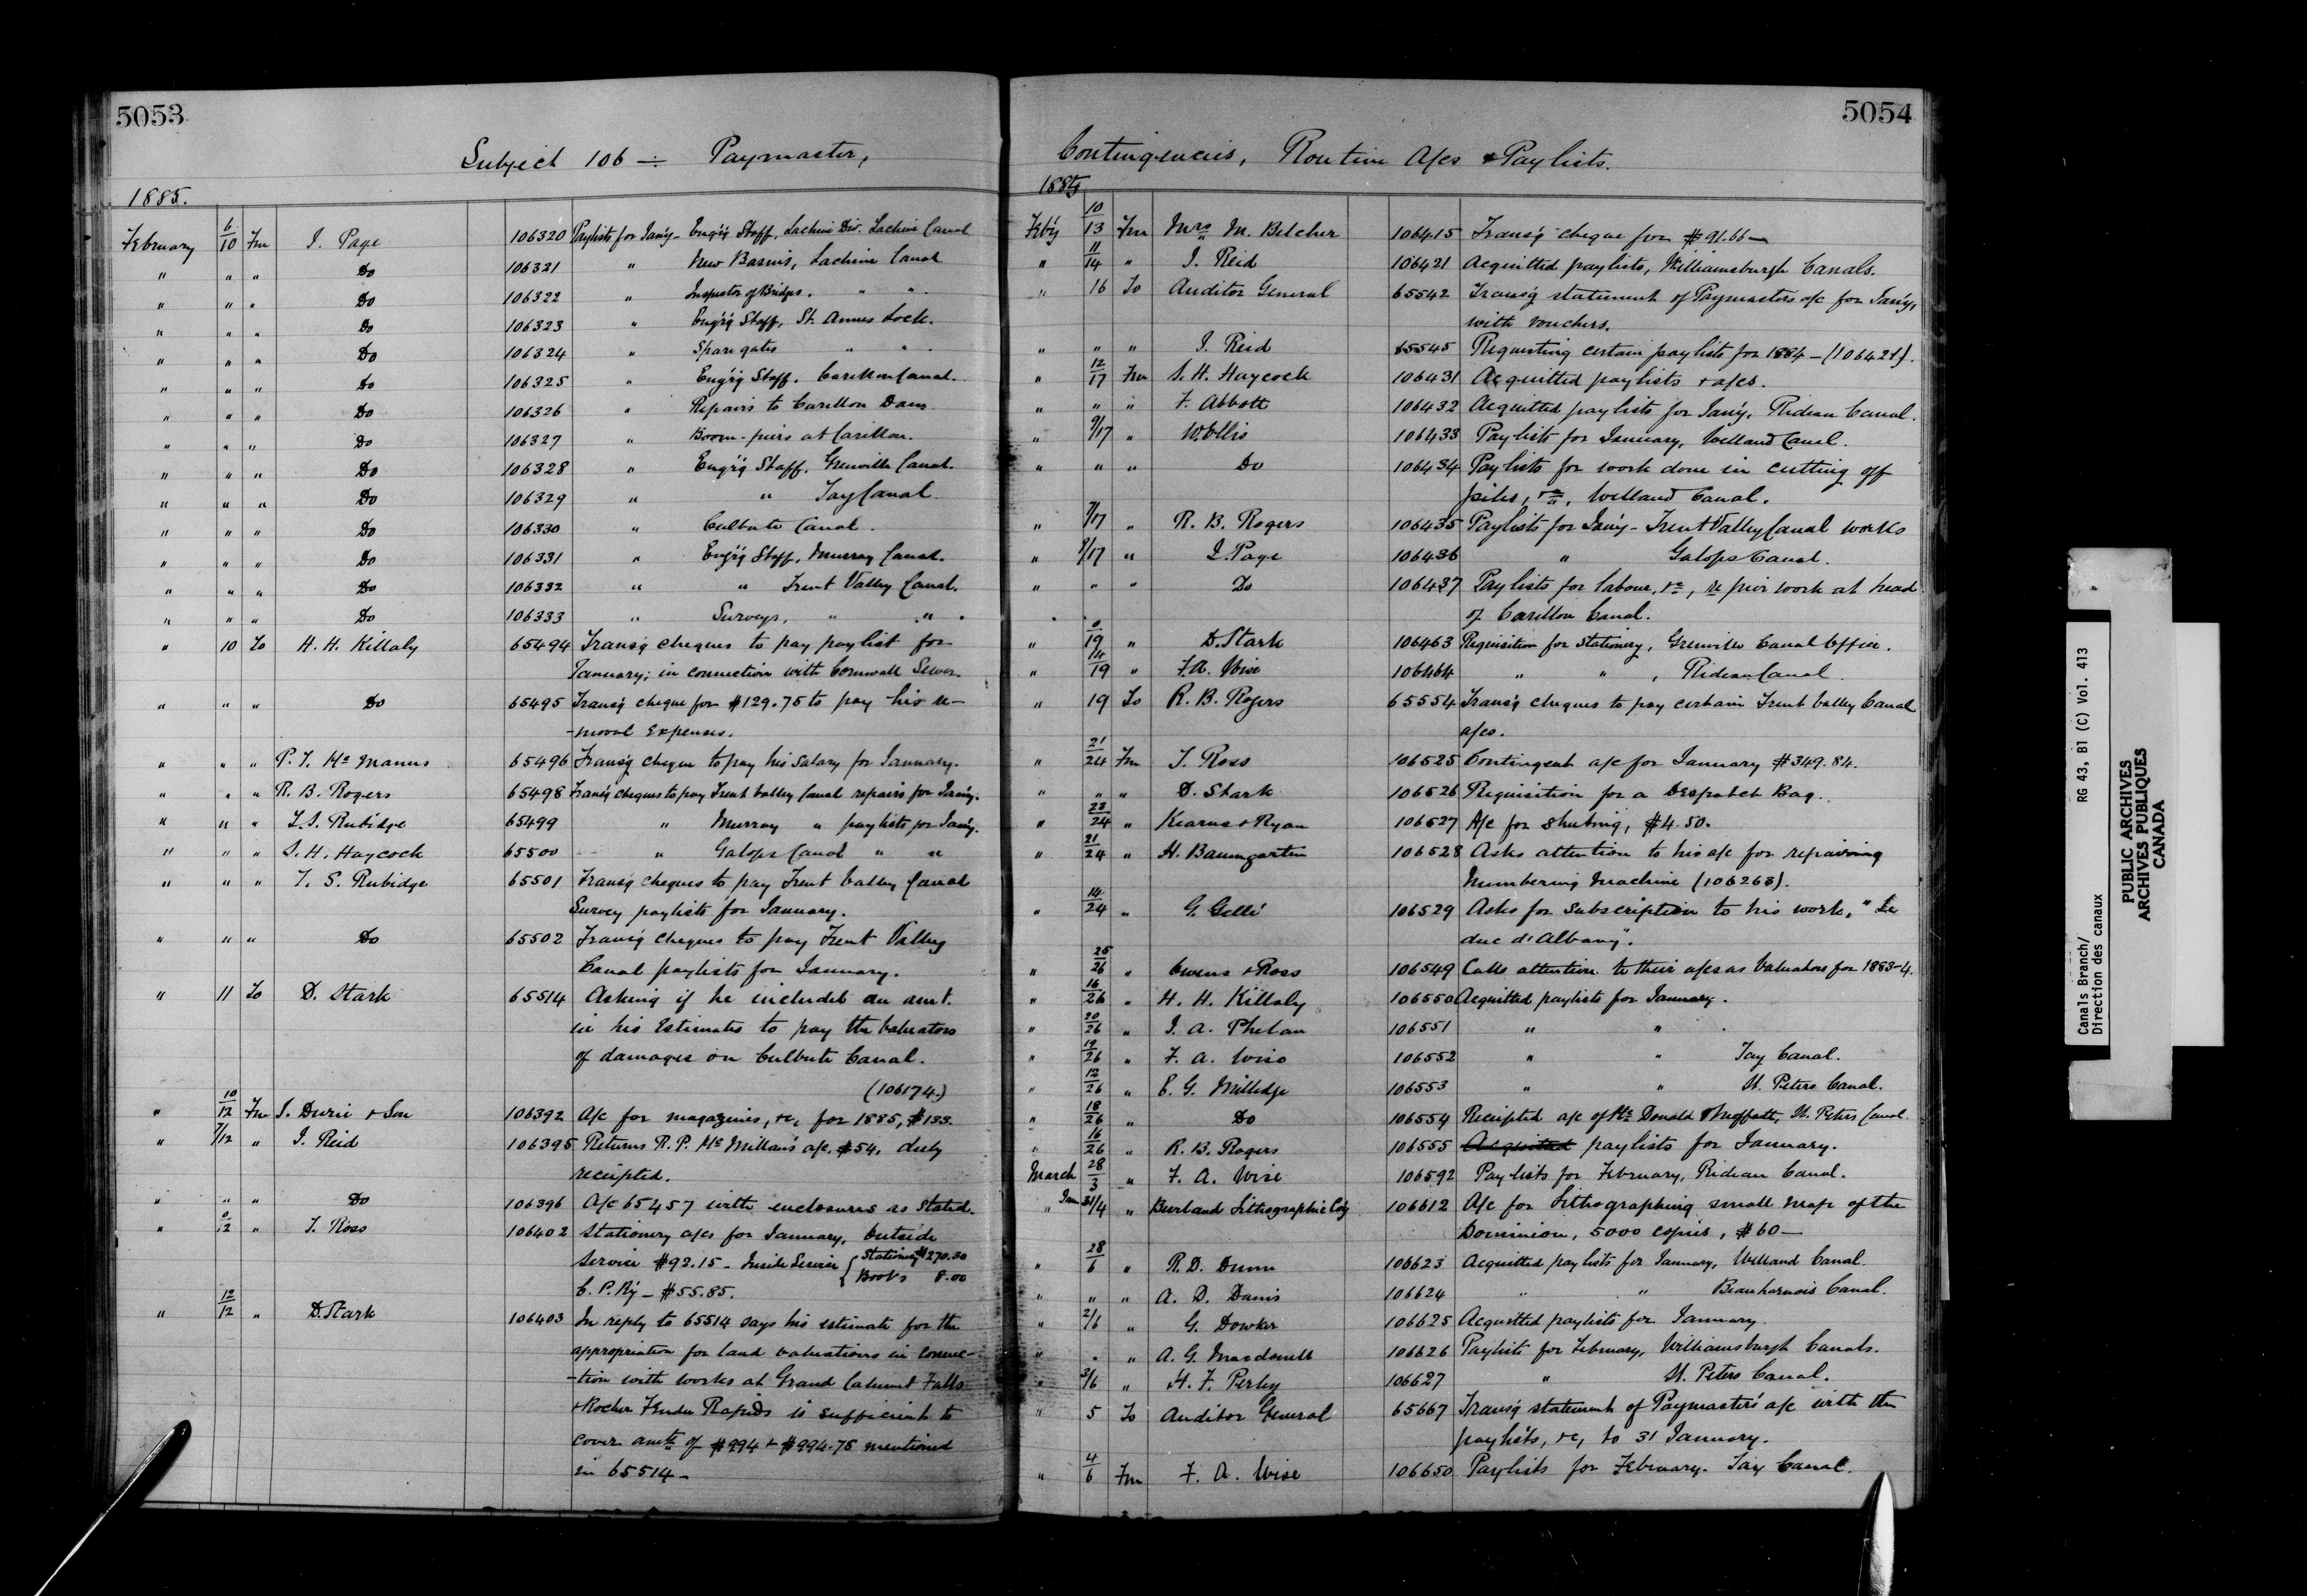 5053
Subject 106 ÷ Paymaster,
1885.
February 6/10 Fm J. Page 106320 Paylists for Jan'y - Eng'r'g Staff, Lachine Div. Lachine Canal
" " " Do 106321 " New Basins, Lachine Canal
" " " Do 106322 " Inspector of Bridges, " "
" " " Do 106323 " Eng'r'g Staff, St. Annes Lock.
" " " Do 106324 " Spare gates " "
" " " Do 106325 " Eng'r'g Staff, Carillon Canal.
" " " Do 106326 " Repairs to Carillon Dam
" " " Do 106327 " Boom-piers at Carillon.
" " " Do 106328 " Eng'r'g Staff, Grenville Canal.
" " " Do 106329 " " Tay Canal
" " " Do 106330 " Culbute Canal.
" " " Do 106331 " Eng'r'g Staff, Murray Canal.
" " " Do 106332 " " Trent Valley Canal.
" " " Do 106333 " Surveys, " " "
" 10 To H. H. Killaly 65494 Trans'g cheques to pay paylist for
January; in connection with Cornwall Sewer.
" " " Do 65495 Trans'g cheque for $129.75 to pay his re-
-moval Expenses.
" " " P. J. Mc Manus 65496 Trans'g cheque to pay his salary for January.
" " " R. B. Rogers 65498 Trans'g cheques to pay Trent Valley Canal repairs for Jan'y.
" " " T. S. Rubidge 65499 " Murray " paylists for Jan'y.
" " " S. H. Haycock 65500 " Galops Canal " "
" " " T. S. Rubidge 65501 Trans'g cheques to pay Trent Valley Canal
Survey paylists for January.
" " " Do 65502 Trans'g cheques to pay Trent Valley
Canal paylists for January.
" 11 To D. Stark 65514 Asking if he included an amt.
in his Estimates to pay the Valuators
of damages on Culbute Canal.
(106174.)
" 10/12 Fm J. Durie & Son 106392 A/c for magazines, &c, for 1885, $133.
" 7/12 " J. Reid 106395 Returns R. P. Mc Millan's a/c, $54, duly
receipted.
" " " Do 106396 A/c 65457 with enclosures as stated.
" 0/12 " T. Ross 106402 Stationery a/cs for January, Outside
Service $92.15 - Inside Service { Stationery $270.30
Books 8.00
C. P. R'y - $55.85.
" 12/12 " D. Stark 106403 In reply to 65514 says his estimate for the
appropriation for land valuations in connec-
-tion with works at Grand Calumet Falls
& Rocher Fendu Rapids is sufficient to
cover amts of $994 & $994.75 mentioned
in 65514 -
5054
Contingencies, Routine A/cs & Paylists.
1885
Feb'y 10/13 Fm Mrs M. Belcher 106415 Trans'g cheque for $91.66 -
" 11/14 " J. Reid 106421 Acquitted paylists, Williamsburgh Canals.
" 16 To Auditor General 65542 Trans'g statement of Paymasters a/c for Jan'y,
with vouchers.
" " " J. Reid 65545 Requesting certain paylists for 1884 - (106421).
" 12/17 Fm S. H. Haycock 106431 Acquitted paylists & a/cs.
" " " F. Abbott 106432 Acquitted paylists for Jan'y, Rideau Canal.
" 9/17 " W. Ellis 106433 Paylists for January, Welland Canal.
" " " Do 106434 Paylists for work done in cutting off
piles, &c, Welland Canal.
" 7/17 " R. B. Rogers 106435 Paylists for Jan'y - Trent Valley Canal works
" 9/17 " J. Page 106436 " Galops Canal.
" " " Do 106437 Paylists for labour, &c, re pier work at head
of Carillon Canal.
" 0/19 " D. Stark 106463 Requisition for Stationery, Grenville Canal Office.
" 14/19 " F. A. Wise 106464 " " , Rideau Canal.
" 19 To R. B. Rogers 65554 Trans'g cheques to pay certain Trent Valley Canal
a/cs.
" 21/24 Fm T. Ross 106525 Contingent a/c for January $349.84.
" " " D. Stark 106526 Requisition for a Despatch Bag.
" 23/24 " Kearns & Ryan 106527 A/c for sheeting, $4.50.
" 21/24 " H. Baumgarten 106528 Asks attention to his a/c for repairing
Numbering Machine (106263).
" 14/24 " G. Gellé 106529 Asks for subscription to his work, "Le
duc d'Albany".
" 25/26 " Owens & Ross 106549 Calls attention to their a/cs as Valuators for 1883-4.
" 16/26 " H. H. Killaly 106550 Acquitted paylists for January.
" 20/26 " J. A. Phelan 106551 " "
" 19/26 " F. A. Wise 106552 " " Tay Canal.
" 12/26 " E. G. Millidge 106553 " " St. Peters Canal.
" 18/26 " Do 106554 Receipted a/c of Mc Donald & Moffatt, St. Peters Canal
" 16/26 " R. B. Rogers 106555 Acquitted paylists for January.
March 28/3 " F. A. Wise 106592 Paylists for February, Rideau Canal.
" Jan 31/4 " Burland Lithographic Co'y 106612 A/c for Lithographing small map of the
Dominion, 5000 copies, $60 -
" 28/6 " R. D. Dunn 106623 Acquitted paylists for January, Welland Canal.
" " " A. D. Danis 106624 " " Beauharnois Canal.
" 2/6 " G. Dowker 106625 Acquitted paylists for January
" " " A. G. Macdonell 106626 Paylists for February, Williamsburgh Canals.
" 3/6 " H. F. Perley 106627 " St. Peters Canal.
" 5 To Auditor General 65667 Trans'g statement of Paymaster's a/c with the
paylists, &c, to 31 January.
" 4/6 Fm F. A. Wise 106650 Paylists for February. Tay Canal.
Canals Branch/
Direction des canaux
RG 43, B1 (C) Vol. 413
PUBLIC ARCHIVES
ARCHIVES PUBLIQUES
CANADA